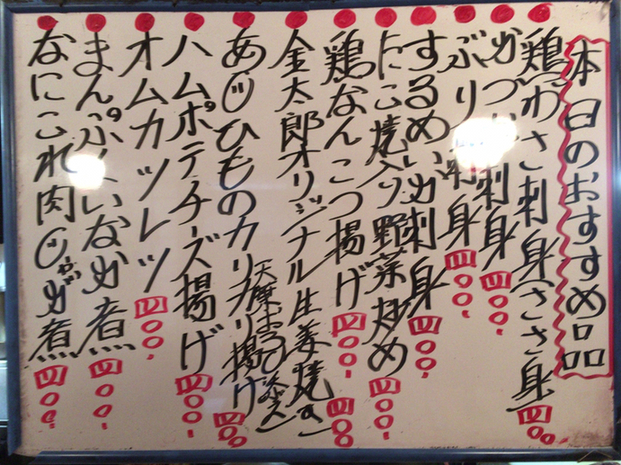 本日のおすすめ品
鶏わさ刺身(ささ身)四〇〇.
刺身四〇〇.
ぶり刺身四〇〇.
するめいか刺身四〇〇.
たこ焼入り野菜炒め四〇〇.
鶏なんこつ揚げ四〇〇.
金太郎オリジナル生姜焼き四〇〇
あじひものカリカリ揚げ四〇〇
ハムポテチーズ揚げ四〇〇.
オムカツレツ四〇〇.
まんぷくいなか煮四〇〇.
なにこれ肉じゃが煮四〇〇.